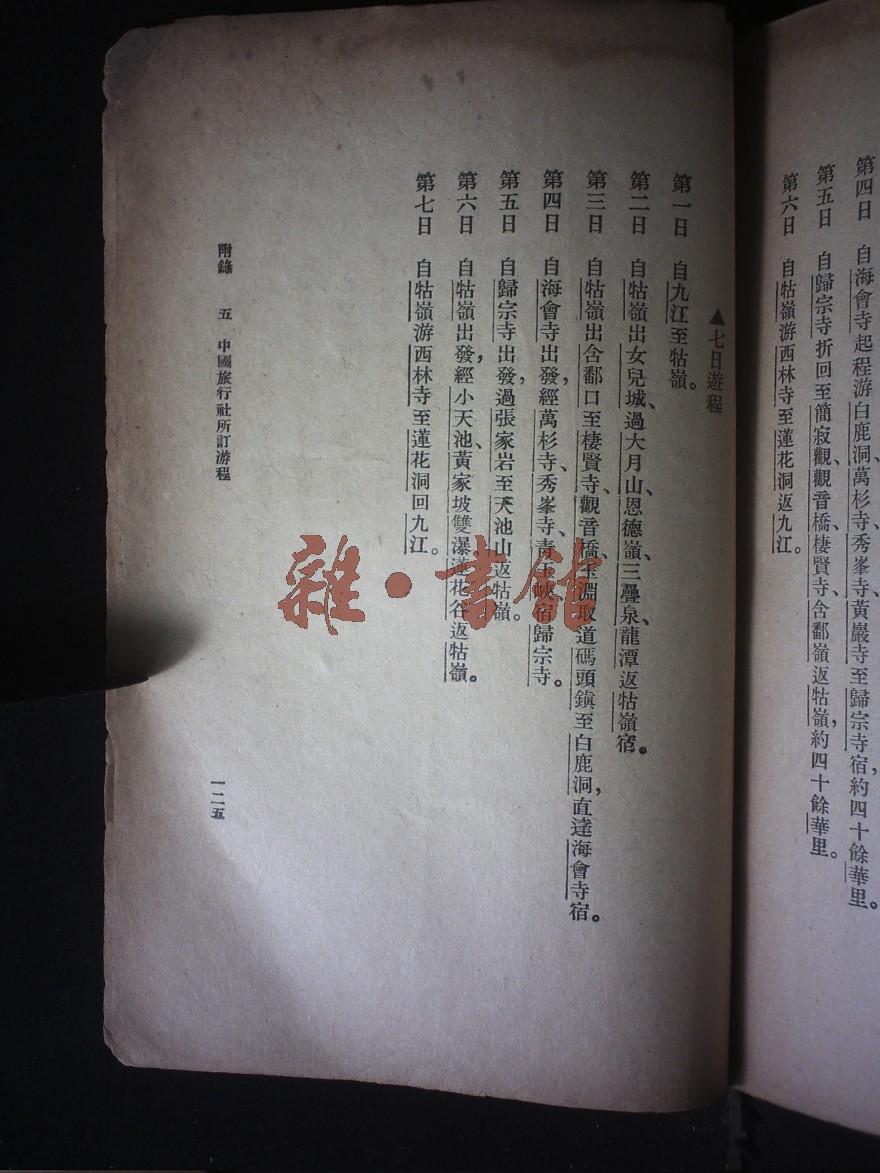 第四日　自海會寺起程游白鹿洞、萬杉寺、秀峯寺、黃巖寺至歸宗寺宿，約四十餘華里。
第五日　自歸宗寺折回至簡寂觀、觀音橋、棲賢寺、含鄱嶺返牯嶺，約四十餘華里。
第六日　自牯嶺游西林寺至蓮花洞返九江。
▲七日遊程
第一日　自九江至牯嶺。
第二日　自牯嶺出女兒城、過大月山、恩德嶺、三疊泉、龍潭返牯嶺宿。
第三日　自牯嶺出含鄱口至棲賢寺、觀音橋、玉淵取道碼頭鎮至白鹿洞，直達海會寺宿。
第四日　自海會寺出發，經萬杉寺、秀峯寺、青玉峽、宿歸宗寺。
第五日　自歸宗寺出發，過張家岩至天池山返牯嶺。
第六日　自牯嶺出發，經小天池、黃家坡雙瀑、蓮花谷返牯嶺。
第七日　自牯嶺游西林寺至蓮花洞回九江。
附錄　五　中國旅行社所訂游程
一二五
雜·書館